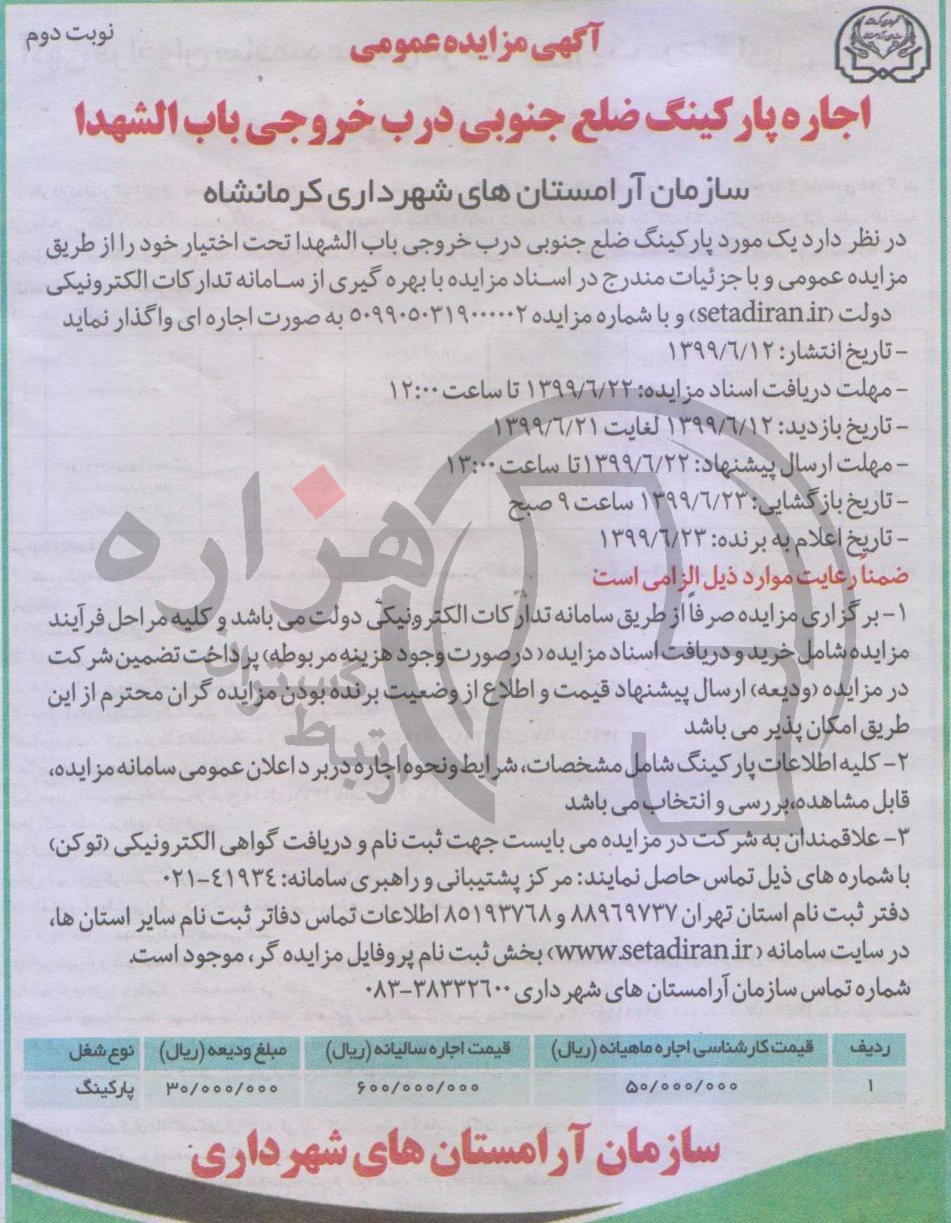 نوبت دوم
آگهی مزایده عمومی
اجاره پارکینگ ضلع جنوبی درب خروجی باب الشهدا
سازمان آرامستان های شهرداری کرمانشاه
در نظر دارد یک مورد پارکینگ ضلع جنوبی درب خروجی باب الشهدا تحت اختیار خود را از طریق
مزایده عمومی و با جزئیات مندرج در اسناد مزایده با بهره گیری از سامانه تدارکات الکترونیکی
دولت (setadiran.ir) و با شماره مزایده ۵۰۹۹۰۵۰۳۱۹۰۰۰۰۰۲ به صورت اجاره ای واگذار نماید
- تاریخ انتشار: ۱۳۹۹/۶/۱۲
- مهلت دریافت اسناد مزایده: ۱۳۹۹/۶/۲۲ تا ساعت ۱۲:۰۰
- تاریخ بازدید: ۱۳۹۹/۶/۱۲ لغایت ۱۳۹۹/۶/۲۱
- مهلت ارسال پیشنهاد: ۱۳۹۹/۶/۲۲ تا ساعت ۱۳:۰۰
- تاریخ بازگشایی: ۱۳۹۹/۶/۲۳ ساعت ۹ صبح
- تاریخ اعلام به برنده: ۱۳۹۹/۶/۲۳
ضمناً رعایت موارد ذیل الزامی است
۱- برگزاری مزایده صرفاً از طریق سامانه تدارکات الکترونیکی دولت می باشد و کلیه مراحل فرآیند
مزایده شامل خرید و دریافت اسناد مزایده (در صورت وجود هزینه مربوطه) پرداخت تضمین شرکت
در مزایده (ودیعه) ارسال پیشنهاد قیمت و اطلاع از وضعیت برنده بودن مزایده گران محترم از این
طریق امکان پذیر می باشد
۲- کلیه اطلاعات پارکینگ شامل مشخصات، شرایط و نحوه اجاره در برد اعلان عمومی سامانه مزایده،
قابل مشاهده، بررسی و انتخاب می باشد
۳- علاقمندان به شرکت در مزایده می بایست جهت ثبت نام و دریافت گواهی الکترونیکی (توکن)
با شماره های ذیل تماس حاصل نمایند: مرکز پشتیبانی و راهبری سامانه: ۴۱۹۳۴-۰۲۱
دفتر ثبت نام استان تهران ۸۸۹۶۹۷۳۷ و ۸۵۱۹۳۷۶۸ اطلاعات تماس دفاتر ثبت نام سایر استان ها،
در سایت سامانه (www.setadiran.ir) بخش ثبت نام پروفایل مزایده گر، موجود است.
شماره تماس سازمان آرامستان های شهرداری ۳۸۳۳۲۶۰۰-۰۸۳
ردیف قیمت کارشناسی اجاره ماهیانه (ریال) قیمت اجاره سالیانه (ریال) مبلغ ودیعه (ریال) نوع شغل
۱ ۵۰/۰۰۰/۰۰۰ ۶۰۰/۰۰۰/۰۰۰ ۳۰/۰۰۰/۰۰۰ پارکینگ
سازمان آرامستان های شهرداری
هزاره
گستران
ارتباط